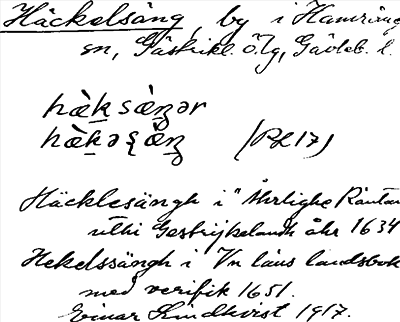 Häckelsäng, by i Hamrånge
sn, Gästrikl. ö. lg, Gävleb. l.
hàksàŋər
hàkəʂàŋ (PL 17)
Häcklesängh i "Åhrlighe Räntan
uthi Gestrijkelandh åhr 1634
Hekelssängh i Vn läns landsbok
med verifik 1651.
Einar Lindkvist 1917.